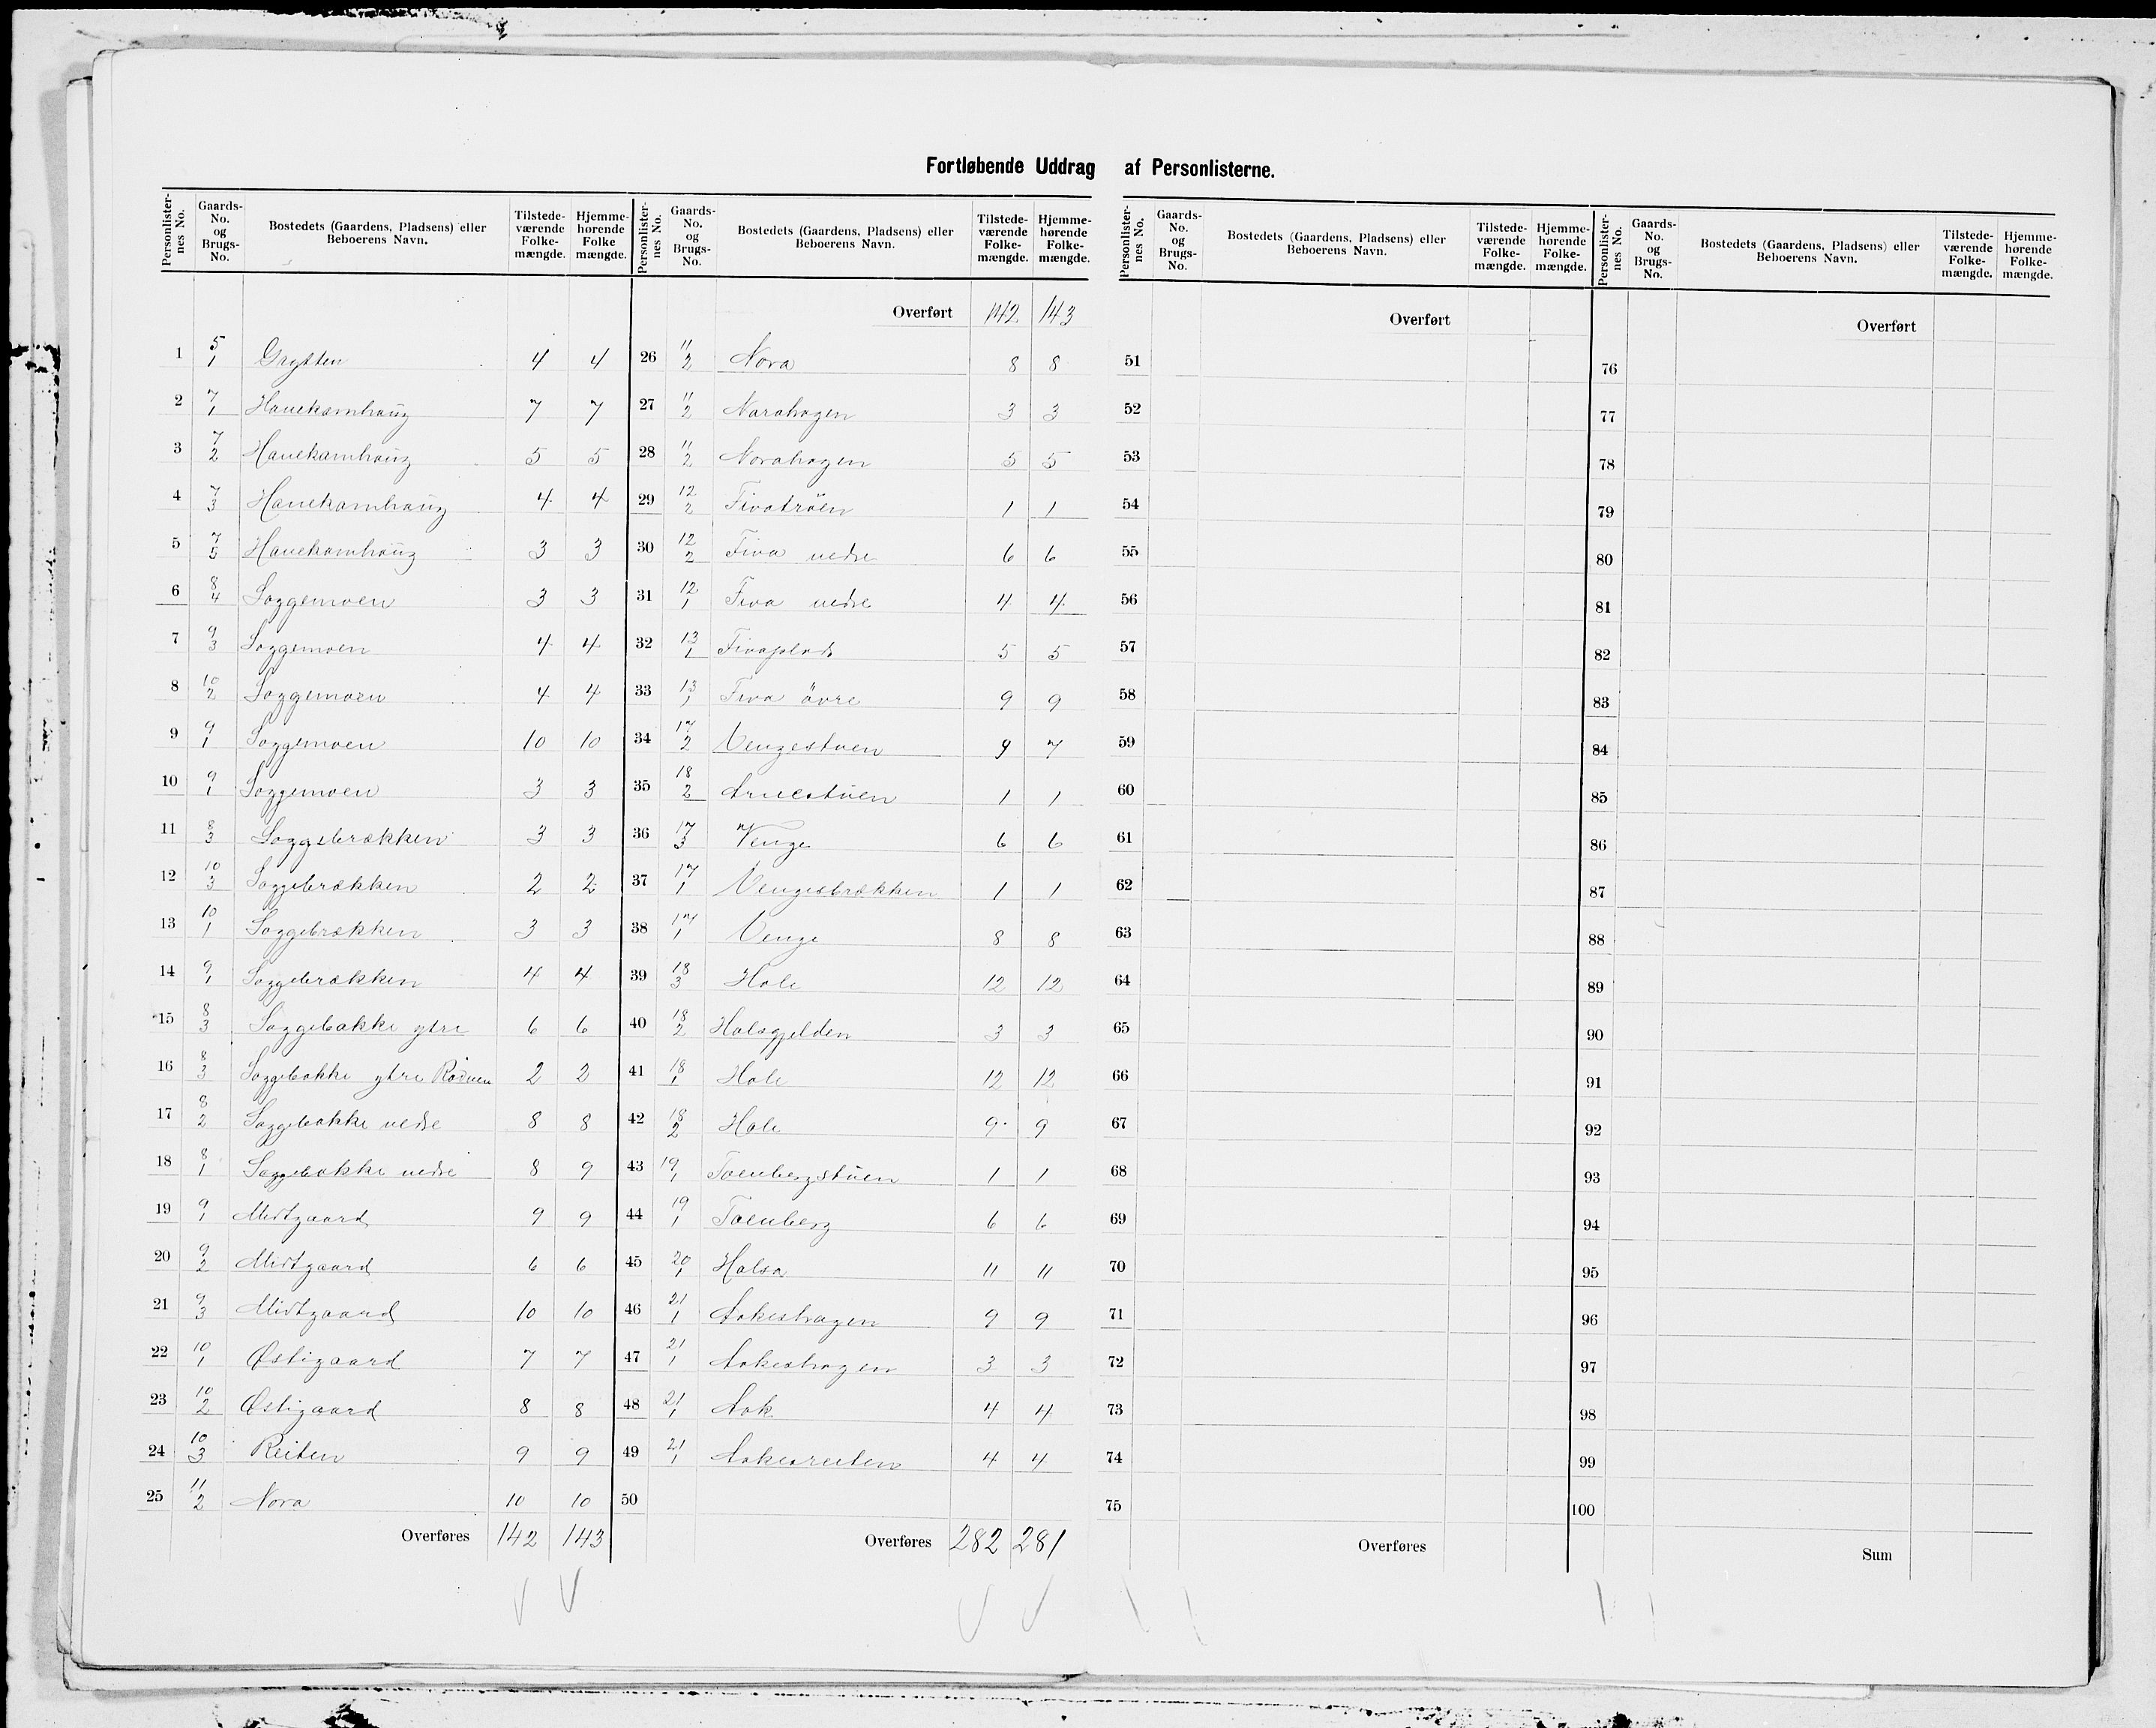 Fortløbende Uddrag af Personlisterne.
Personlisternes No. | Gaards-No. og Brugs-No. | Bostedets (Gaardens, Pladsens) eller Beboerens Navn. | Tilstedeværende Folkemængde. | Hjemmehørende Folkemængde.
1 5/1 Grytten 4 4
2 7/1 Hanekamhaug 7 7
3 7/2 Hanekamhaug 5 5
4 7/3 Hanekamhaug 4 4
5 7/5 Hanekamhaug 3 3
6 8/4 Soggemoen 3 3
7 9/3 Soggemoen 4 4
8 10/2 Soggemoen 4 4
9 9/1 Soggemoen 10 10
10 9/1 Soggemoen 3 3
11 8/3 Soggebrækken 3 3
12 10/3 Soggebrækken 2 2
13 10/1 Soggebrækken 3 3
14 9/1 Soggebrækken 4 4
15 8/3 Soggebakke ytre 6 6
16 8/3 Soggebakke ytre 2 2
17 8/2 Soggebakke nedre 8 8
18 8/1 Soggebakke nedre 8 9
19 9/1 Midtgaard 9 9
20 9/2 Midtgaard 6 6
21 9/3 Midtgaard 10 10
22 10/1 Østigaard 7 7
23 10/2 Østigaard 8 8
24 10/3 Reiten 9 9
25 11/2 Nora 10 10
Overføres 142 143
Personlisternes No. | Gaards-No. og Brugs-No. | Bostedets (Gaardens, Pladsens) eller Beboerens Navn. | Tilstedeværende Folkemængde. | Hjemmehørende Folkemængde.
Overført 142 143
26 11/2 Nora 8 8
27 11/2 Norahagen 3 3
28 11/2 Norahagen 5 5
29 12/2 Fivatröen 1 1
30 12/2 Fiva nedre 6 6
31 12/1 Fiva nedre 4 4
32 13/1 Fivaplads 5 5
33 13/1 Fiva övre 9 9
34 17/2 Vengestuen 9 7
35 18/2 Arnestuen 1 1
36 17/3 Venge 6 6
37 17/1 Vengesbrækken 1 1
38 17/1 Venge 8 8
39 18/3 Hole 12 12
40 18/2 Holsgjelden 3 3
41 18/1 Hole 12 12
42 18/2 Hole 9 9
43 19/1 1 1
44 19/1 6 6
45 20/1 Halsa 11 11
46 21/1 Aakeshagen 9 9
47 21/1 Aakeshagen 3 3
48 21/1 Aak 4 4
49 21/1 Aakesreiten 4 4
50
Overføres 282 281
Personlisternes No. | Gaards-No. og Brugs-No. | Bostedets (Gaardens, Pladsens) eller Beboerens Navn. | Tilstedeværende Folkemængde. | Hjemmehørende Folkemængde.
Overført
51
52
53
54
55
56
57
58
59
60
61
62
63
64
65
66
67
68
69
70
71
72
73
74
75
Overføres
Personlisternes No. | Gaards-No. og Brugs-No. | Bostedets (Gaardens, Pladsens) eller Beboerens Navn. | Tilstedeværende Folkemængde. | Hjemmehørende Folkemængde.
Overført
76
77
78
79
80
81
82
83
84
85
86
87
88
89
90
91
92
93
94
95
96
97
98
99
100
Sum